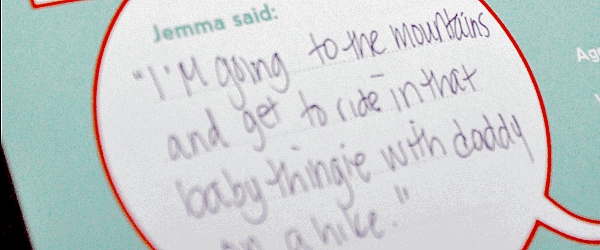 Jemma said:
"I'm going to the mountains
and get to ride in that
baby thingie with daddy
on a hike."